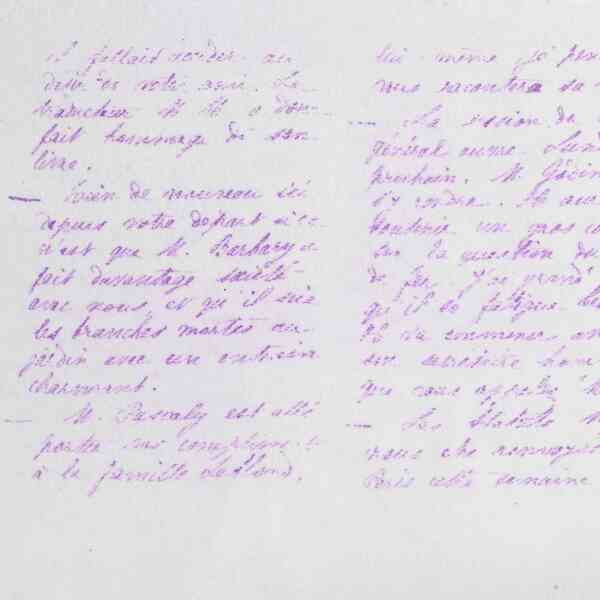 il fallait céder au
désir de votre ami. Le
traducteur M. M. a donc
fait hommage de son
livre.
— Rien de nouveau ici
depuis votre départ si ce
n'est que M. Barbary a
fait davantage société
avec nous et qu'il scie
les branches mortes au
jardin avec un entrain
charmant.
— M. Pascaly est allé
porter vos compliments
à la famille
lui-même je
vous racontera sa
— La session de
général ouvre Lundi
prochain. M. Godin
s'y rendra. Il aura
soutenir un gros
sur la question du
de fer. J'ai grand
qu'il se fatigue
va commencer
son secrétaire
que vous appelez
— Les Statuts
nous être renvoyés
Paris cette semaine